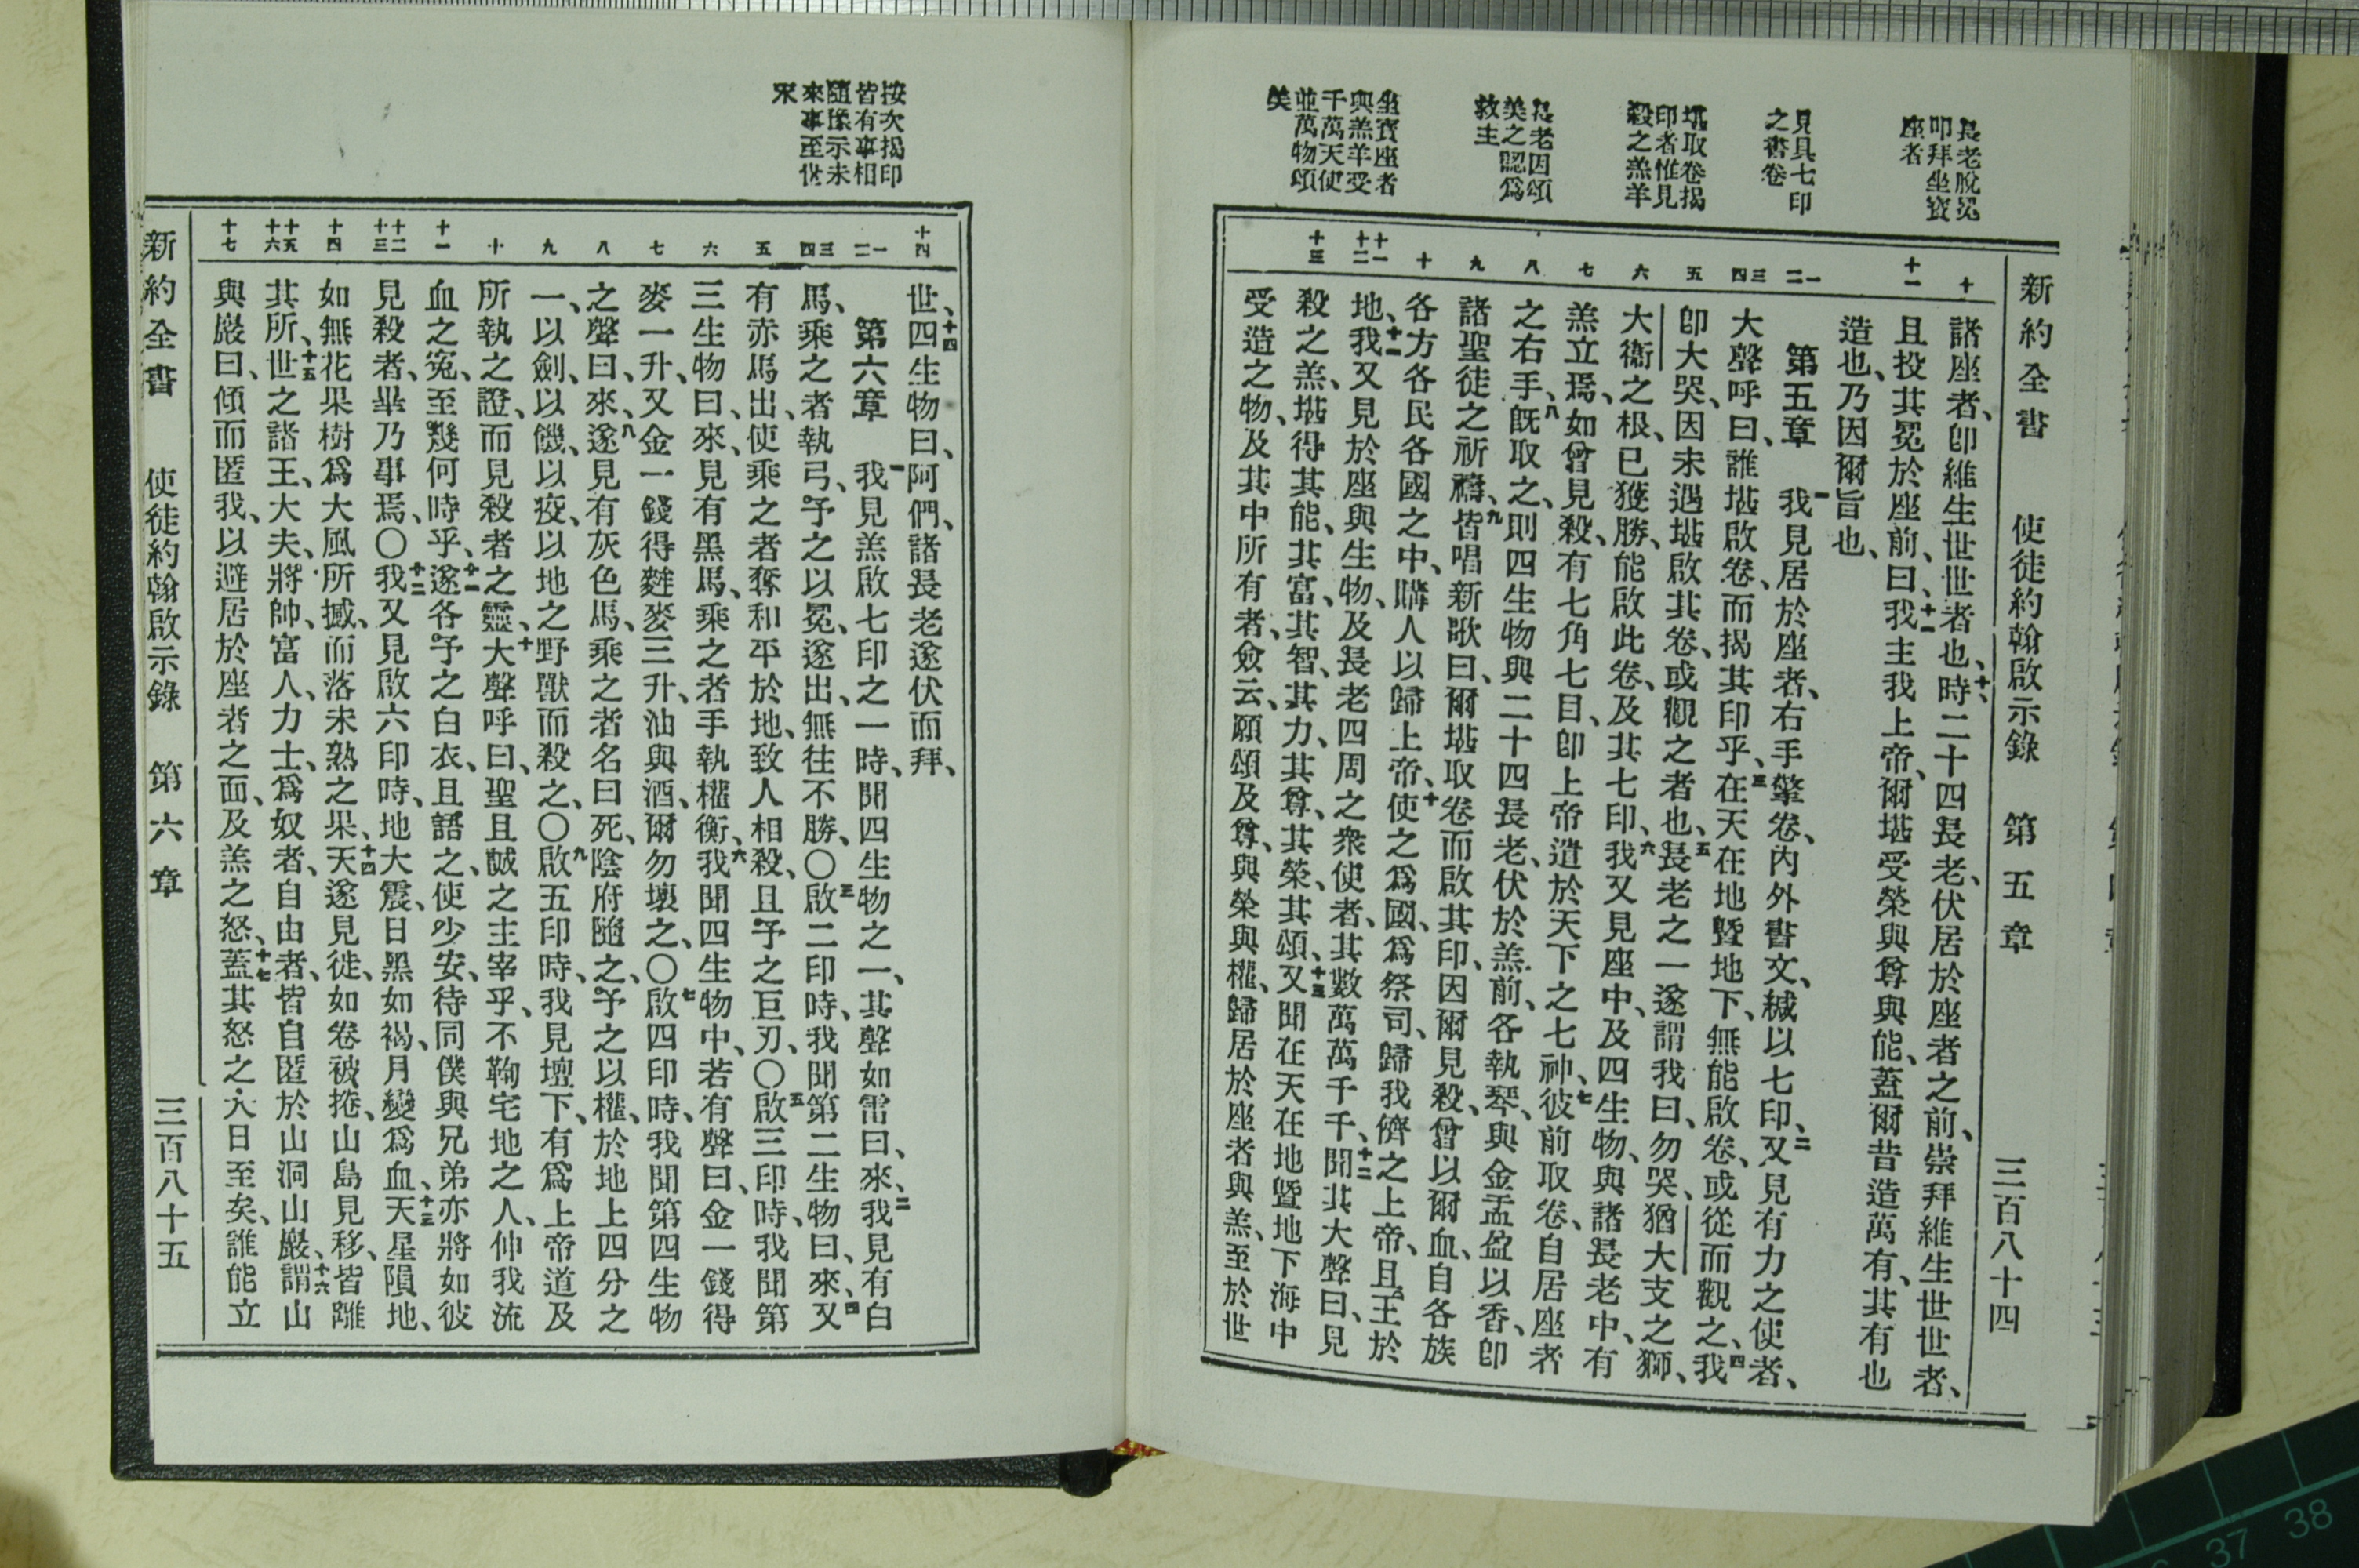 長老脫冕
叩拜坐寶
座者
見具七印
之書卷
堪取卷揭
印者惟見
殺之羔羊
長老因頌
美之認為
救主
坐寶座者
與羔羊受
千萬天使
並萬物頌
美
新約全書 使徒約翰啟示錄 第五章 三百八十四
十 十一 一二 三四 五 六 七 八 九 十 十一十二 十三
諸座者、卽維生世世者也、十、時二十四長老、伏居於座者之前、崇拜維生世世者、
且投其冕於座前、曰、十一我主我上帝、爾堪受榮與尊與能、蓋爾昔造萬有、其有也
造也、乃因爾旨也、
第五章 一我見居於座者、右手擎卷、內外書文、緘以七印、二又見有力之使者、
大聲呼曰、誰堪啟卷、而揭其印乎、三在天在地曁地下、無能啟卷、或從而觀之、四我
卽大哭、因未遇堪啟其卷、或觀之者也、五長老之一遂謂我曰、勿哭、猶大支之獅、
大衞之根、已獲勝、能啟此卷、及其七印、六我又見座中、及四生物、與諸長老中、有
羔立焉、如曾見殺、有七角七目、卽上帝遣於天下之七神、七彼前取卷、自居座者
之右手、八旣取之、則四生物與二十四長老、伏於羔前、各執琴、與金盂盈以香、卽
諸聖徒之祈禱、九皆唱新歌曰、爾堪取卷而啟其印、因爾見殺、曾以爾血、自各族
各方各民各國之中、購人以歸上帝、十使之為國、為祭司、歸我儕之上帝、且王於
地、十一我又見於座與生物、及長老四周之衆使者、其數萬萬千千、十二聞其大聲曰、見
殺之羔、堪得其能、其富、其智、其力、其尊、其榮、其頌、十三又聞在天在地曁地下海中
受造之物、及其中所有者、僉云、願頌及尊、與榮與權、歸居於座者與羔、至於世
按次揭印
皆有事相
隨係示未
來事至世
末
十四 一二 三四 五 六 七 八 九 十 十一 十二十三 十四 十五十六 十七
世、十四四生物曰、阿們、諸長老遂伏而拜、
第六章 一我見羔啟七印之一時、聞四生物之一、其聲如雷曰、來、二我見有白
馬、乘之者執弓、予之以冕、遂出、無往不勝、〇三啟二印時、我聞第二生物曰、來、四又
有赤馬出、使乘之者奪和平於地、致人相殺、且予之巨刃、〇五啟三印時、我聞第
三生物曰、來、見有黑馬、乘之者手執權衡、六我聞四生物中、若有聲曰、金一錢得
麥一升、又金一錢得麰麥三升、油與酒、爾勿壞之、〇七啟四印時、我聞第四生物
之聲曰、來、八遂見有灰色馬、乘之者名曰死、陰府隨之、予之以權、於地上四分之
一、以劍、以饑、以疫、以地之野獸而殺之、〇九啟五印時、我見壇下、有為上帝道及
所執之證、而見殺者之靈、十大聲呼曰、聖且誠之主宰乎、不鞫宅地之人、伸我流
血之寃、至幾何時乎、十一遂各予之白衣、且語之、使少安、待同僕與兄弟亦將如彼
見殺者、畢乃事焉、〇十二我又見啟六印時、地大震、日黑如褐、月變為血、十三天星隕地、
如無花果樹為大風所撼、而落未熟之果、十四天遂見徙、如卷被捲、山島見移、皆離
其所、十五世之諸王、大夫、將帥、富人、力士、為奴者、自由者、皆自匿於山洞山巖、十六謂山
與巖曰、傾而匿我、以避居於座者之面、及羔之怒、十七蓋其怒之大日至矣、誰能立
新約全書 使徒約翰啟示錄 第六章 三百八十五
37 38